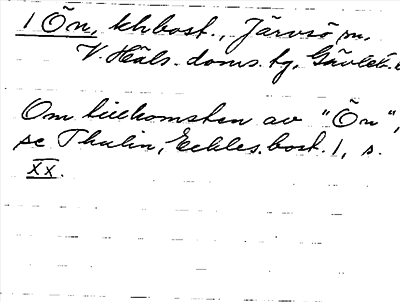 1 Ön, khbost., Järvsö sn,
V. Häls. doms.tg, Gävleb. l
Om tillkomsten av "Ön",
se Thulin, Eckles.bost. 1, s.
XX.